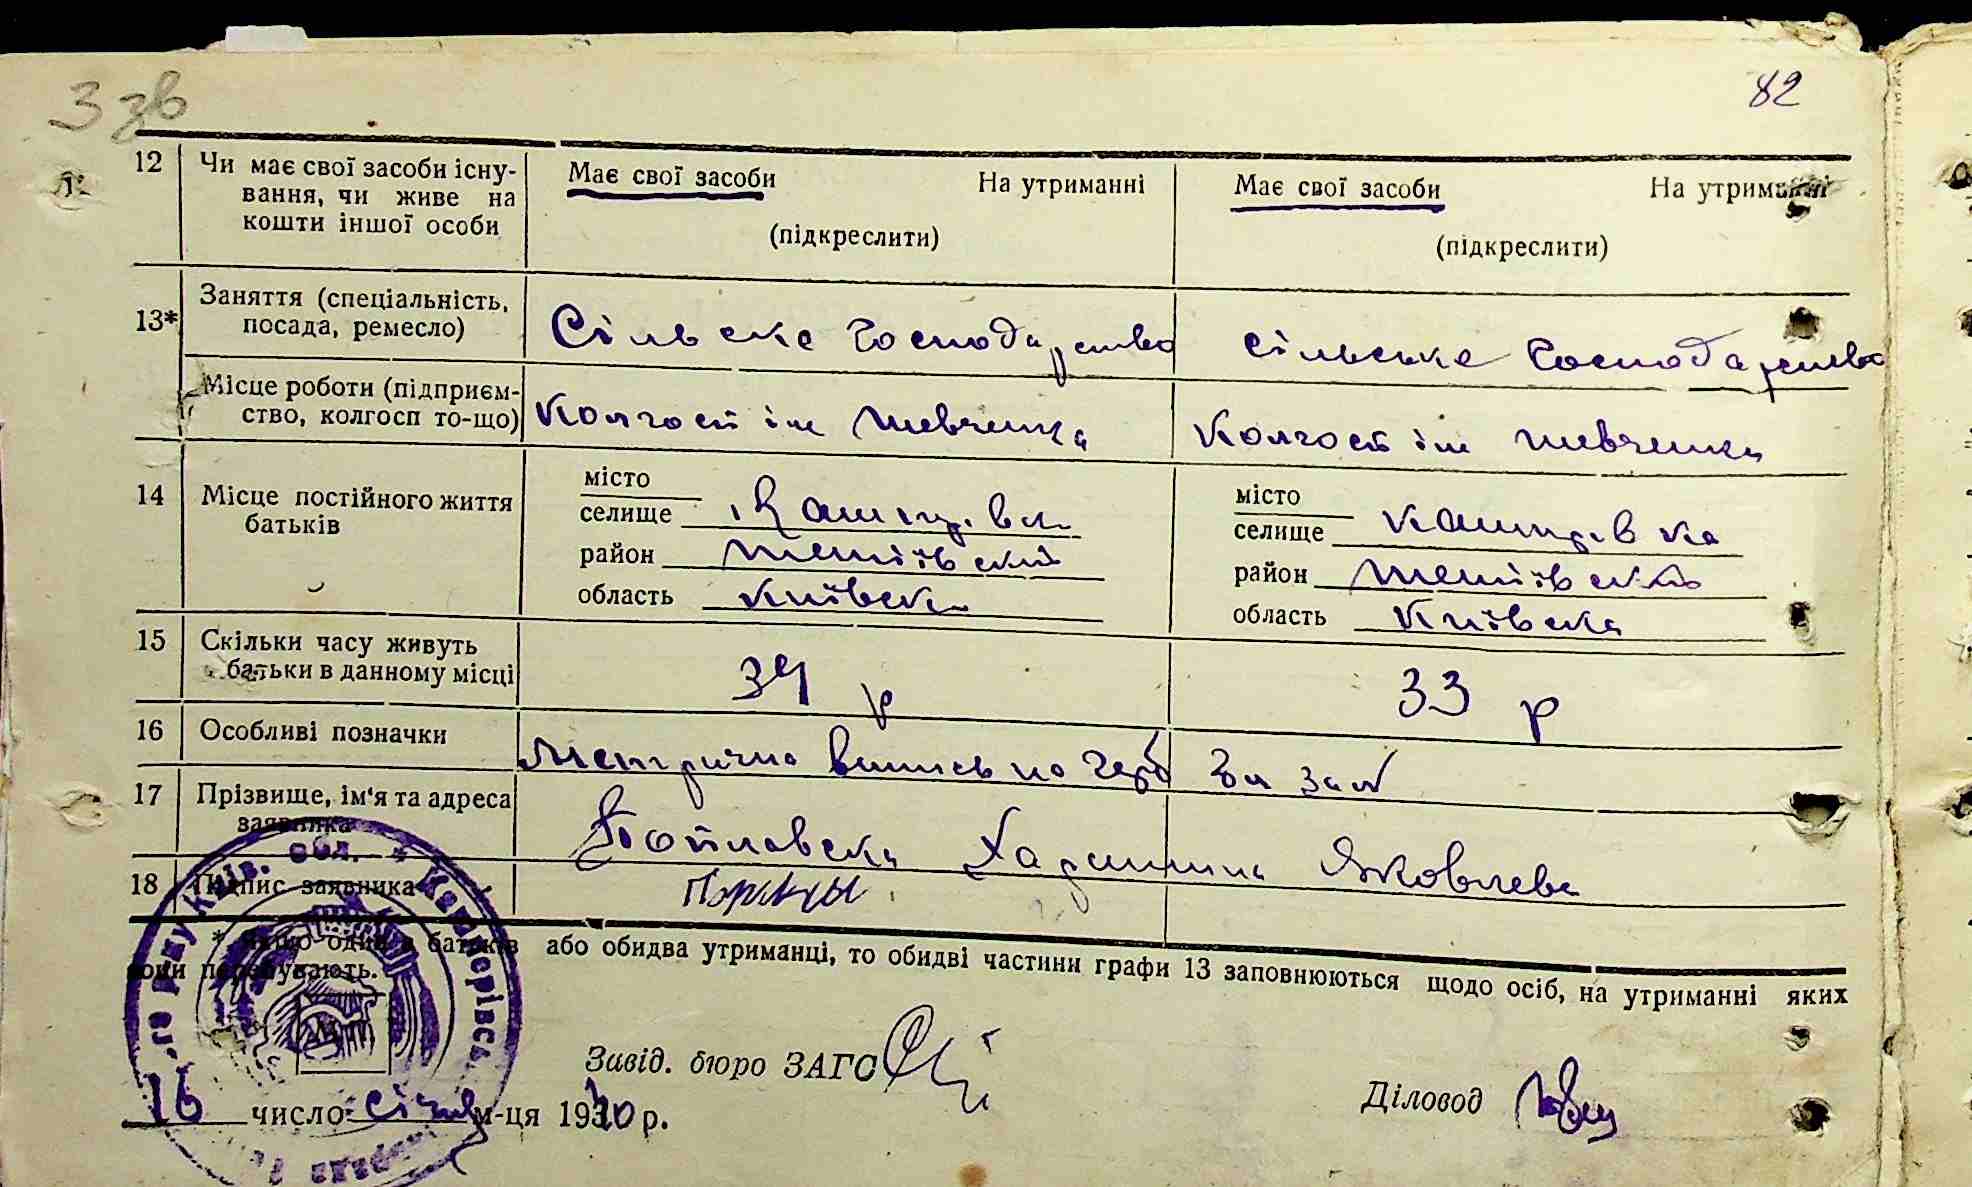 3 зв
82
12 Чи має свої засоби існу- Має свої засоби На утриманні Має свої засоби На утриманні
вання, чи живе на
кошти іншої особи (підкреслити) (підкреслити)
13* Заняття (спеціальність, посада, ремесло) Сільске господарство сільське господарство
Місце роботи (підприєм-
ство, колгосп то-що) Колгосп ім Шевченка Колгосп ім Шевченка
14 Місце постійного життя
батьків
місто місто
селище селище
район Тетіївский район Тетіївский
область Київска область Київска
15 Скільки часу живуть
батьки в данному місці 34 р 33 р
16 Особливі позначки Метрична випись по герб
17 Прізвище, ім‘я та адреса
заявника Яковлева
18 Підпис заявника
* Якщо один з батьків або обидва утриманці, то обидві частини графи 13 заповнюються щодо осіб, на утриманні яких
вони перебувають.
Київ. Обл. * Кашперівсь
Завід. бюро ЗАГС
Діловод
16 число січня м-ця 1940 р.